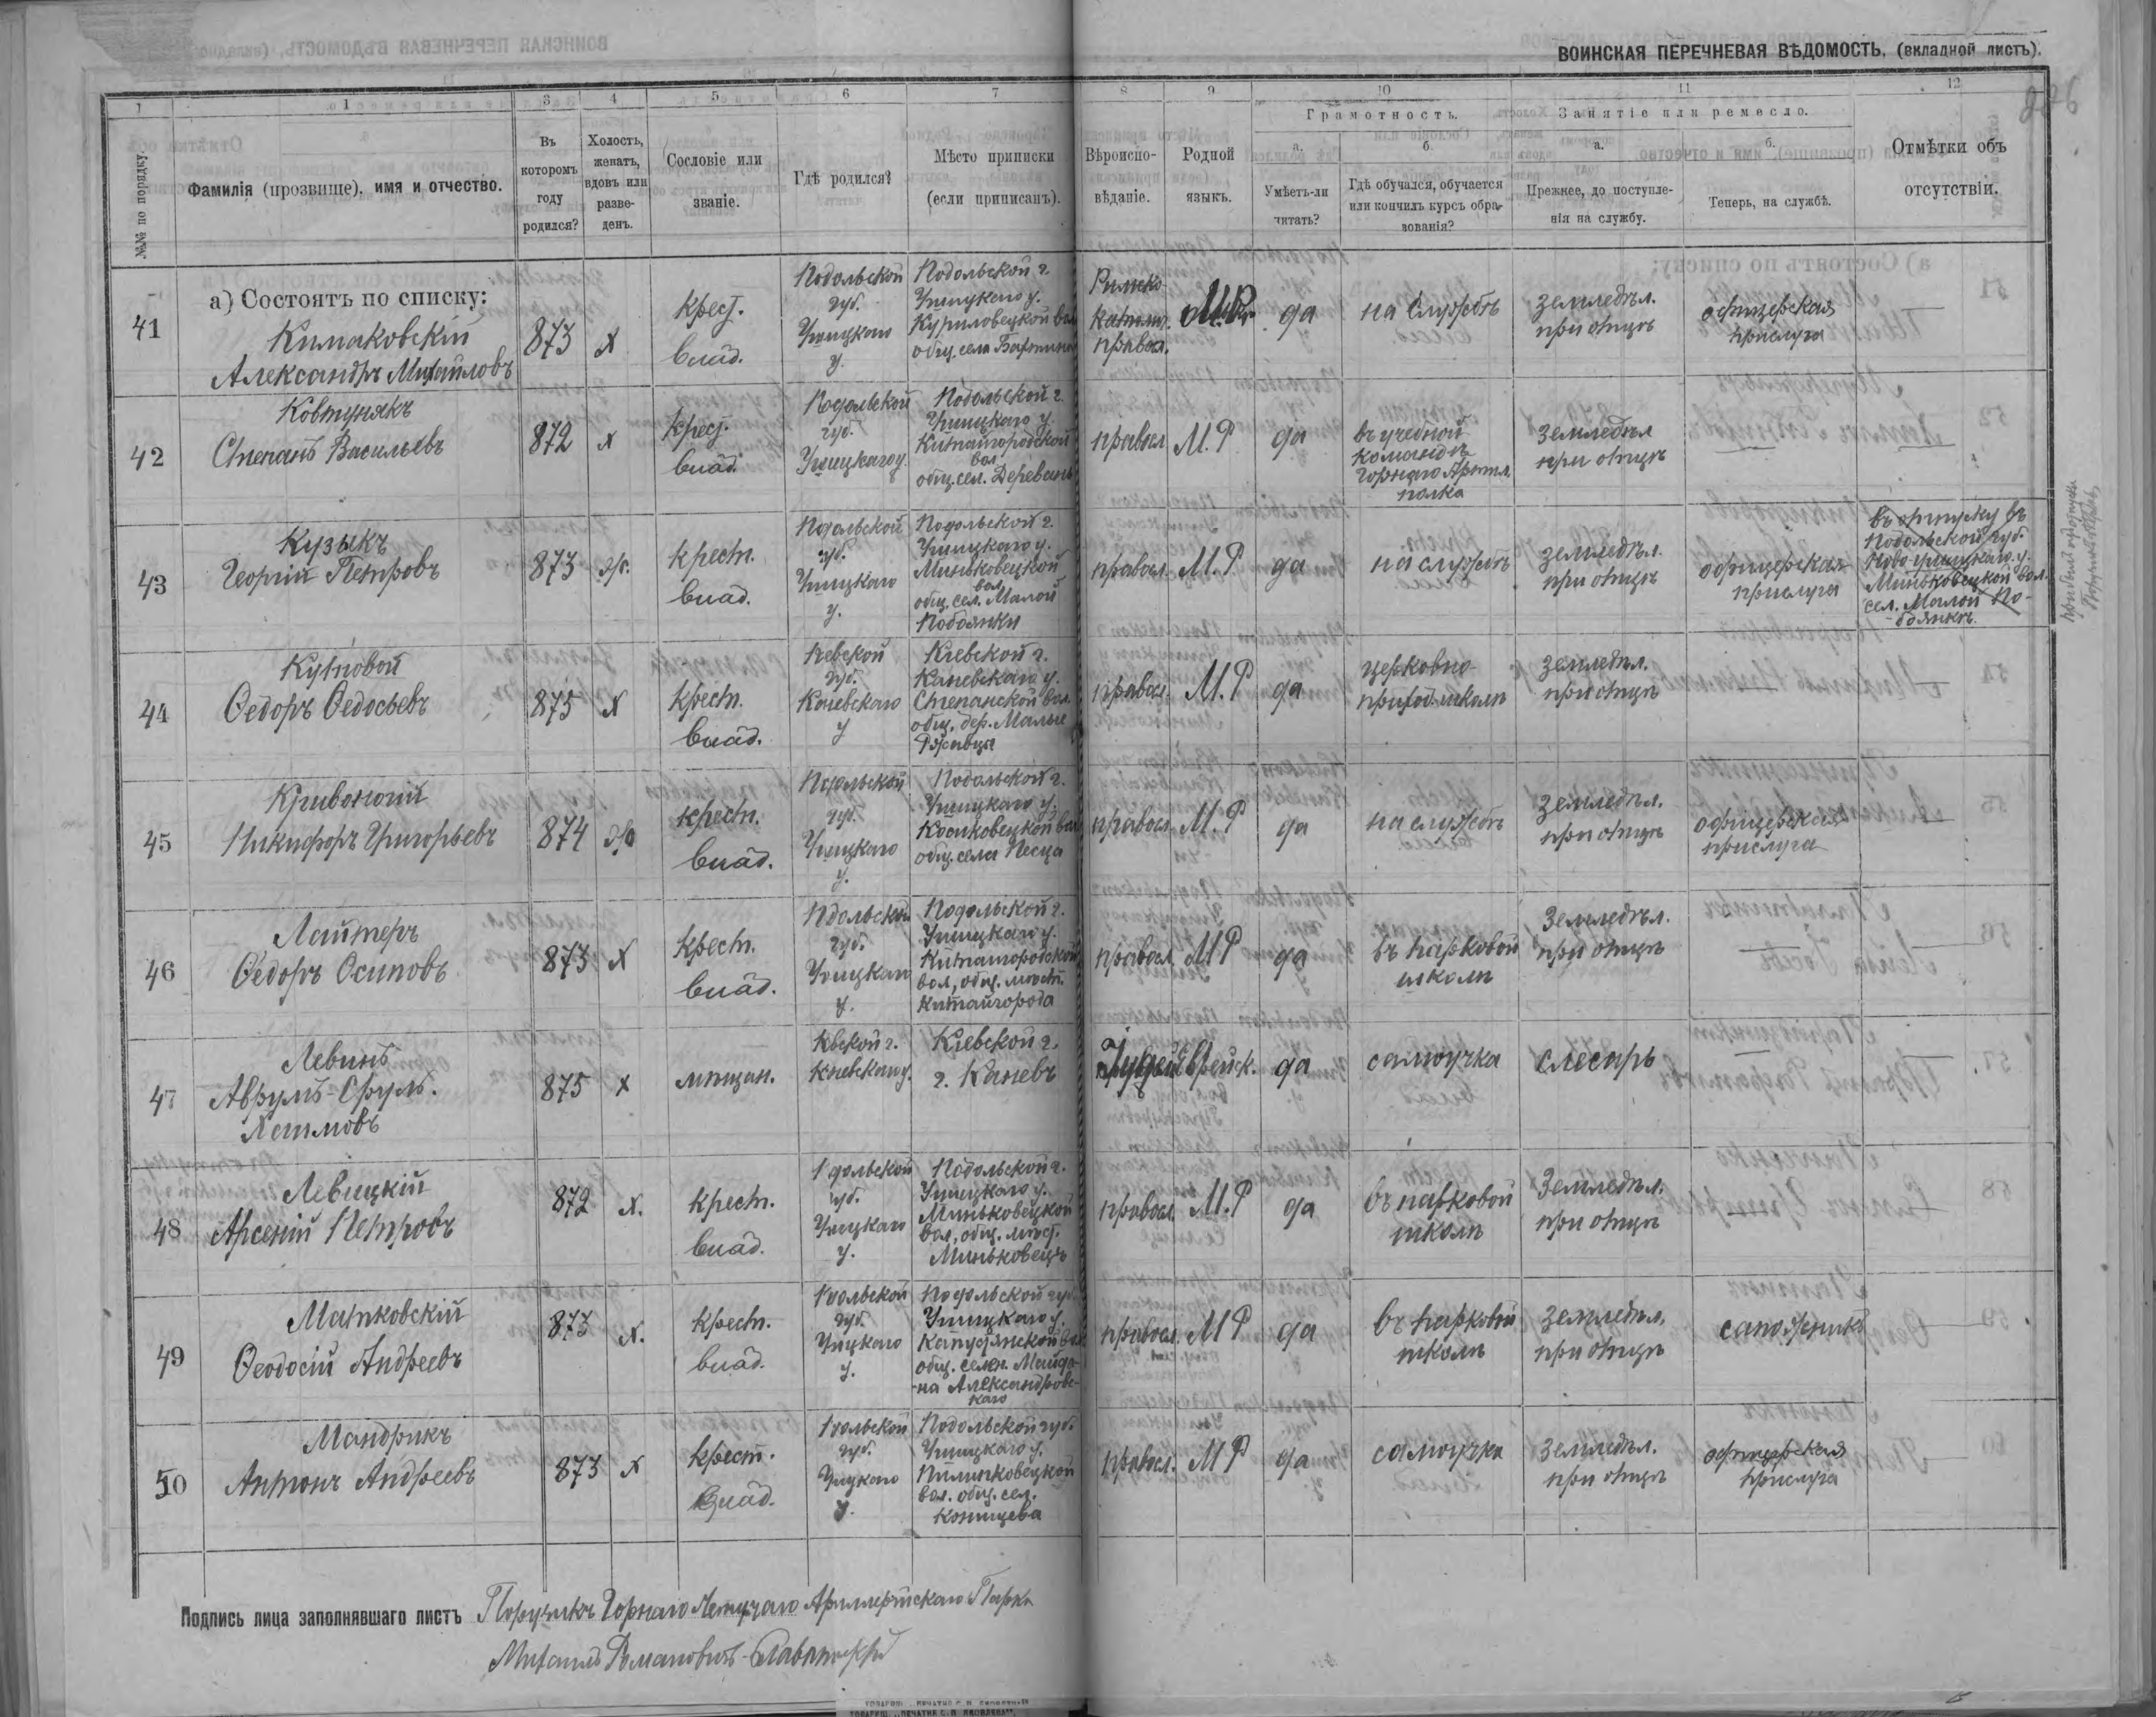 ВОИНСКАЯ ПЕРЕЧНЕВАЯ ВѢДОМОСТЬ, (вкладной листъ).
1 1 3 4 5 6 7 8 9 10 11 12
№№ по порядку.
Фамилія (прозвище), имя и отчество.
Въ которомъ году родился?
Холостъ, женатъ, вдовъ или разведенъ.
Сословіе или званіе.
Гдѣ родился?
Мѣсто приписки (если приписанъ).
Вѣроисповѣданіе.
Родной языкъ.
Грамотность.
а. Умѣетъ-ли читать?
б. Гдѣ обучался, обучается или кончилъ курсъ образованія?
Занятіе или ремесло.
а. Прежнее, до поступленія на службу.
б. Теперь, на службѣ.
Отмѣтки объ отсутствіи.
а) Состоятъ по списку:
41
Климаковскій
Александръ Михайловъ
873
х
крест.
влад.
Подольской
губ.
Ушицкаго
у.
Подольской г.
Ушицкаго у.
Куриловецкой вол
общ. села
Римско
катол.
М.Р.
да
на службѣ
земледѣл.
при отцѣ
офицерская
прислуга
42
Ковтунякъ
Степанъ Васильевъ
872
х
крест.
влад.
Подольской
губ.
Ушицкаго у.
Подольской г.
Ушицкаго у.
Китайгородской
вол
общ. сел. Деревянъ
правосл
М.Р
да
въ учебной
командѣ
Горнаго Артил.
полка
земледѣл
при отцѣ
43
Кузыкъ
Георгій Петровъ
873
ж.
крест.
влад.
Подольской
губ.
Ушицкаго
у.
Подольской г.
Ушицкаго у.
Миньковецкой
вол
общ. сел. Малой
Побоянки
правосл
М.Р
да
на службѣ
земледѣл.
при отцѣ
офицерская
прислуга
въ отпуску въ
Подольской губ.
Ново-ушицкаго у.
Миньковецкой вол.
сел. Малой По-
боянкѣ.
44
Кутповой
Ѳедоръ Ѳедосьевъ
875
х
крест.
влад.
Кіевской
губ.
Каневскаго
у
Кіевской г.
Каневскаго у.
Степанской вол.
общ. дер. Малые
Ржавцы
правосл.
М.Р
да
церковно-
приход. школѣ
земледѣл.
при отцѣ
45
Кривоногій
Никифоръ Григорьевъ
874
ж
крест.
влад.
Подольской
губ.
Ушицкаго
у.
Подольской г.
Ушицкаго у.
Косиковецкой вол
общ. села Песца
правосл
М.Р
да
на службѣ
земледѣл.
при отцѣ
офицерская
прислуга
46
Лайтеръ
Ѳедоръ Осиповъ
873
х
крест.
влад.
Подольской
губ.
Ушицкаго
у.
Подольской г.
Ушицкаго у.
Китайгородской
вол, общ. мѣст.
Китайгорода
правосл
М.Р
да
въ парковой
школѣ
земледѣл.
при отцѣ
47
Левинъ
Аврумъ-Сруль.
Хаимовъ
875
х
мѣщан.
Кіевской г.
Каневскаго у.
Кіевской г.
г. Каневъ
іудейс
еврейск.
да
самоучка
слесарь
48
Левицкій
Арсеній Петровъ
872
х.
крест.
влад.
Подольской
губ.
Ушицкаго
у.
Подольской г.
Ушицкаго у.
Миньковецкой
вол, общ. мѣст.
Миньковецъ
правосл.
М.Р
да
въ парковой
школѣ
земледѣл.
при отцѣ
49
Матковскій
Ѳеодосій Андреевъ
873
х.
крест.
влад.
Подольской
губ.
Ушицкаго
у.
Подольской губ
Ушицкаго у.
Капустянской вол
общ. селен. Майда-
на Александровс-
каго
правосл.
М.Р
да
въ парковой
школѣ
земледѣл.
при отцѣ
сапожникъ
50
Мандрикъ
Антонъ Андреевъ
873
х
крест.
влад.
Подольской
губ.
Ушицкаго
у.
Подольской губ.
Ушицкаго у.
Пилипковецкой
вол. общ. сел.
Конищева
правосл.
М.Р
да
самоучка
земледѣл.
при отцѣ
офицерская
прислуга
Подпись лица заполнявшаго листъ Поручикъ Горнаго Летучаго Артиллерійскаго Парка
Михаилъ Романовичъ-